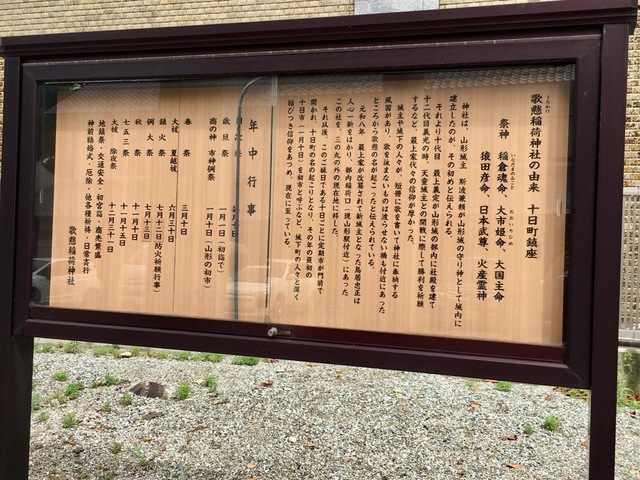 歌懸稲荷神社の由来　十日町鎮座
うたかけ
祭神　稲倉魂命、大市姫命、大国主命
猿田彦命、日本武尊、火産霊神
神社は、山形城主　斯波兼頼が山形城の守り神として城内に
建立したのが、その初めと伝えられる。
それより十代目　最上義定が山形城の郭内に社殿を建て
十二代目義光の時、天童城主との開戦に際して勝利を祈願
するなど、最上家代々の信仰が厚かった。
城主や城下の人々が、短冊に歌を書いて神社に奉納する
風習があり、歌を詠まないものは渡らせない橋も付近にあった
ところから歌懸の名が起こったと伝えられている。
元和八年　最上家が改易されて新城主となった鳥居忠正は
人心一新をはかり、郭内稲荷口（現山形駅付近）にあった
この社を、三の丸の外の現在地に移した。
それ以後、このご縁日である十日ごとに定期市が門前で
開かれ、十日町の名の起こりとなり、その年の最初の
十日市（一月十日）を初市と呼ぶなど、城下町の人々と深く
結びつき信仰をあつめ、現在に至っている。
年中行事
月次祭　毎月十日
歳旦祭　一月一日（初詣で）
商の神　市神例祭　一月十日（山形の初市）
春祭　三月十日
大祓　夏越祓　六月三十日
鎮火祭　七月十二日（防火祈願行事）
例大祭　七月十三日
秋祭　十一月十日
七五三祭　十一月十五日
大祓　除夜祭　十二月三十一日
地鎮祭・交通安全・初宮詣・商売繁盛
神前結婚式・厄除・他各種祈祷・日常斎行
歌懸稲荷神社